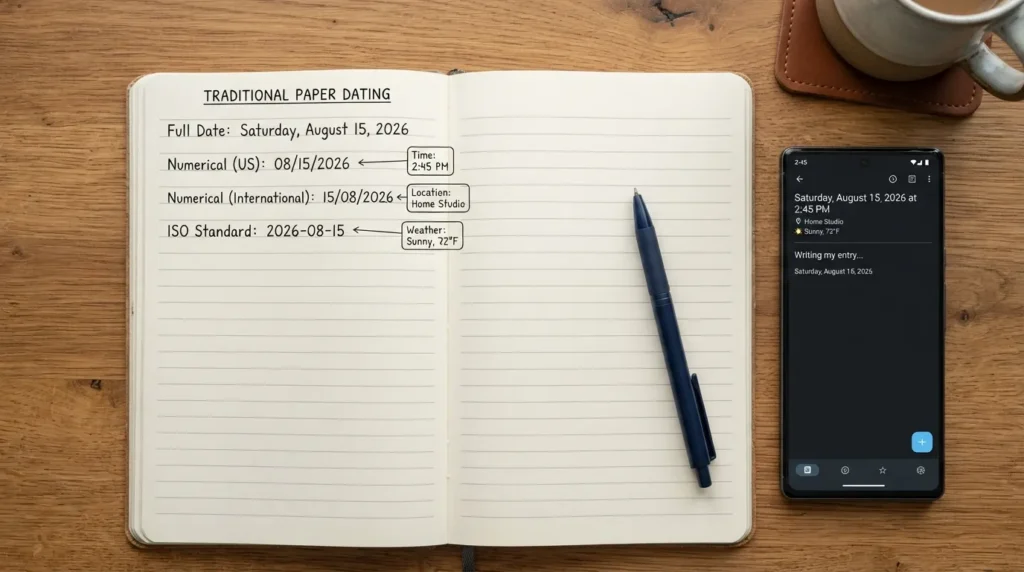 TRADITIONAL PAPER DATING
Full Date: Saturday, August 15, 2026
Numerical (US): 08/15/2026
Time:
2:45 PM
Numerical (International): 15/08/2026
Location:
Home Studio
ISO Standard: 2026-08-15
Weather:
Sunny, 72°F
2:45
Saturday, August 15, 2026 at
2:45 PM
Home Studio
Sunny, 72°F
Writing my entry...
Saturday, August 16, 2026